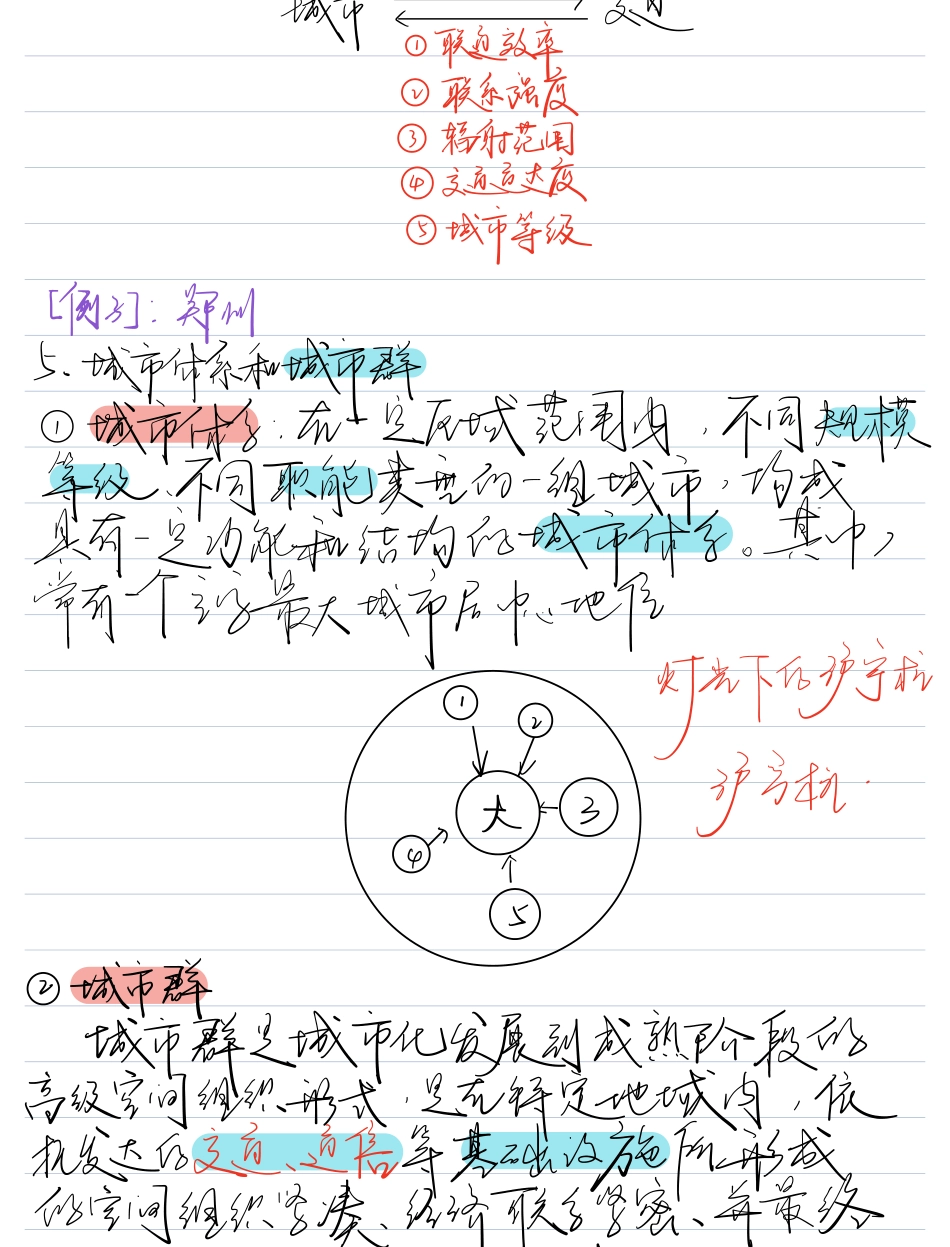 城市 交通
① 联通效率
② 联系强度
③ 辐射范围
④ 交通通达度
⑤ 城市等级
[例子]：郑州
5、城市体系和城市群
① 城市体系：在一定区域范围内，不同规模
等级、不同职能类型的一组城市，构成
具有一定功能和结构的城市体系。其中，
常有一个或多最大城市居中心地位
灯光下的沪宁杭
沪宁杭.
① ②
大 ③
④
⑤
② 城市群
城市群是城市化发展到成熟阶段的
高级空间组织形式，是在特定地域内，依
托发达的交通、通信等基础设施所形成
的空间组织紧凑、经济联系紧密、并最终